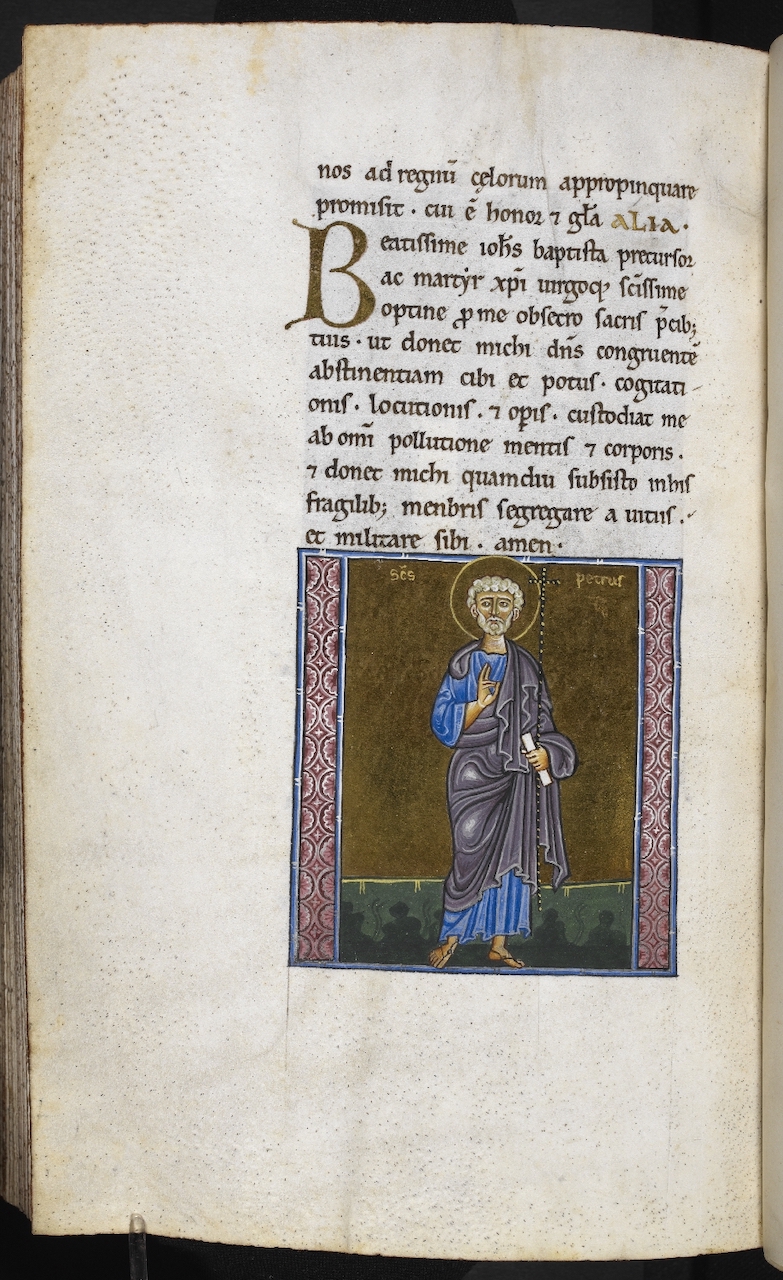 nos ad regnū cęlorum appropinquare
promisit · cui ē honor ⁊ gl̄a ALIA ·
Beatissime ioh̄s baptista precursor
ac martyr xp̄i uirgoq; sc̄issime
optine ꝓ me obsecro sacris p̄cib;
tuis · ut donet michi dn̄s congruentē
abstinentiam cibi et potus · cogitati-
onis · locutionis · ⁊ op̄is · custodiat me
ab omī pollutione mentis ⁊ corporis ·
⁊ donet michi quamdiu subsisto inhis
fragilib; menbris segregare a uitiis ·
et militare sibi · amen ·
Sc̄s petrus